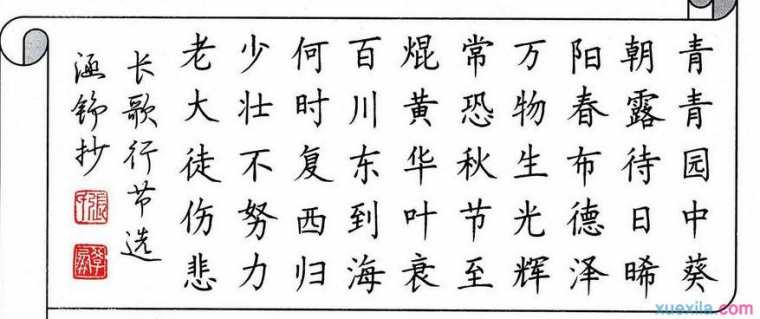 青青园中葵
朝露待日晞
阳春布德泽
万物生光辉
常恐秋节至
焜黄华叶衰
百川东到海
何时复西归
少壮不努力
老大徒伤悲
长歌行节选
涵舒抄
xuexila.com